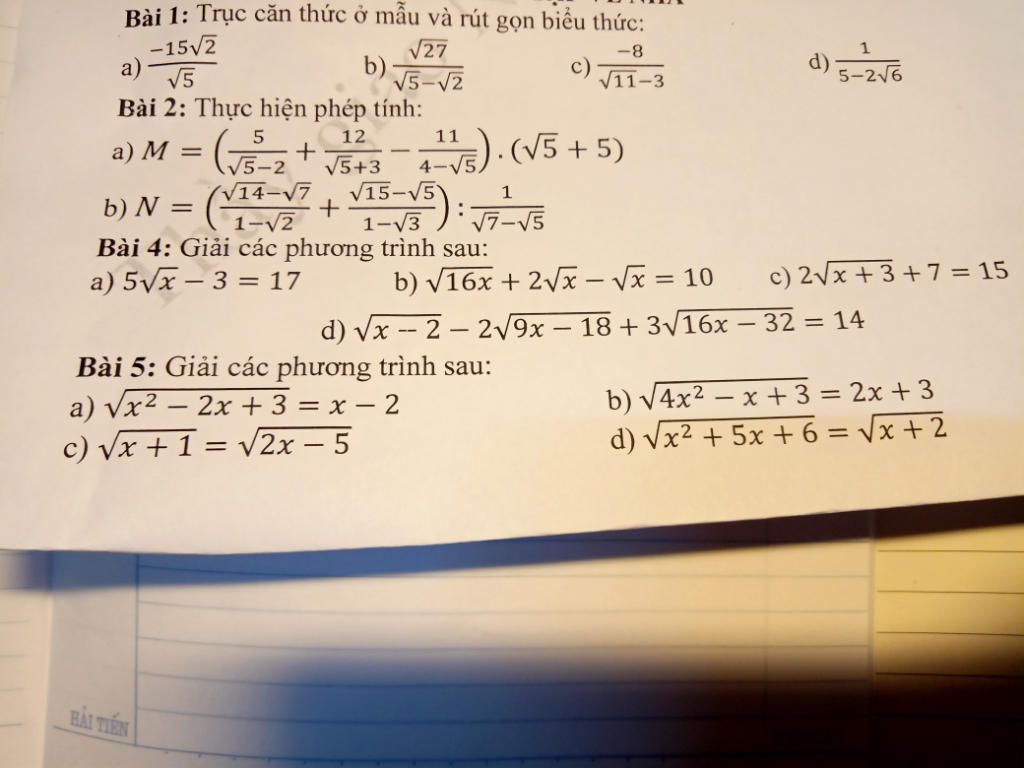 Bài 1: Trục căn thức ở mẫu và rút gọn biểu thức:
a) −15√2/√5 b) √27/(√5−√2) c) −8/(√11−3) d) 1/(5−2√6)
Bài 2: Thực hiện phép tính:
a) M = (5/(√5−2) + 12/(√5+3) − 11/(4−√5)) . (√5 + 5)
b) N = ((√14−√7)/(1−√2) + (√15−√5)/(1−√3)) : 1/(√7−√5)
Bài 4: Giải các phương trình sau:
a) 5√x − 3 = 17 b) √(16x) + 2√x − √x = 10 c) 2√(x + 3) + 7 = 15
d) √(x −− 2) − 2√(9x − 18) + 3√(16x − 32) = 14
Bài 5: Giải các phương trình sau:
a) √(x² − 2x + 3) = x − 2 b) √(4x² − x + 3) = 2x + 3
c) √(x + 1) = √(2x − 5) d) √(x² + 5x + 6) = √(x + 2)
HẢI TIẾN